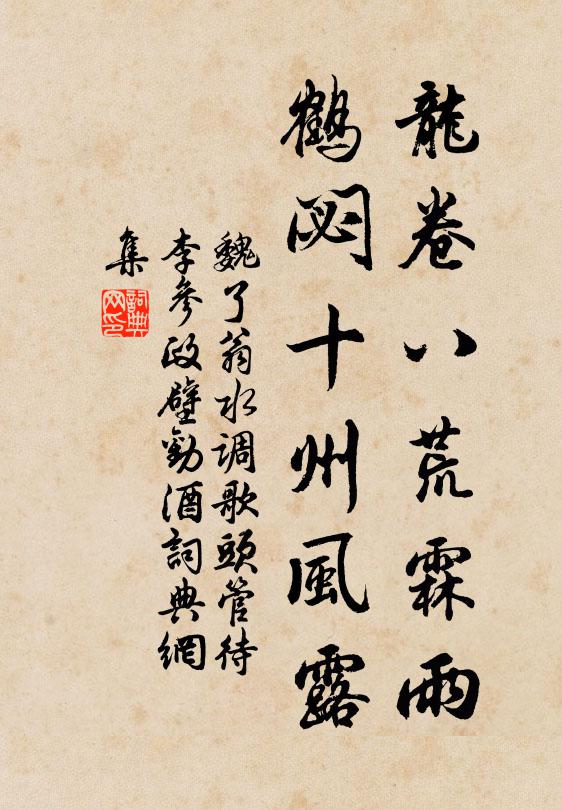 龍卷八荒霖雨
鶴閟十州風露
魏了翁水调歌頭管待
李參政壁勸酒詞典網
集
詞典网印